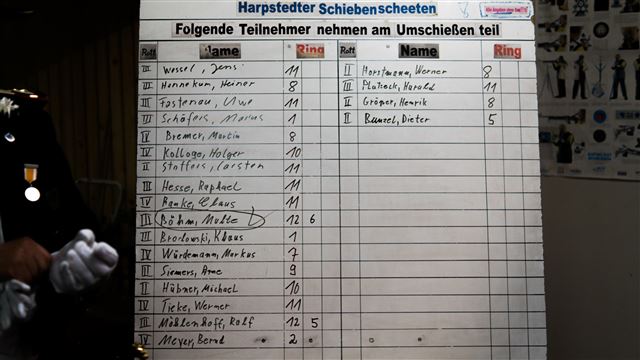 Harpstedter Schiebenscheeten
Folgende Teilnehmer nehmen am Umschießen teil
Rott Name Ring Rott Name Ring
III Wessel, Jens 11 II Horstmann, Werner 8
III Hannekum, Heiner 8 III Harald 11
III Fastenau, Uwe 11 II Gröper, Henrik 8
III Schäfers, Marius 1 II Bunzel, Dieter 5
IV Bremer, Martin 8
IV Kolloge, Holger 10
II Stoffers, Carsten 11
III Hesse, Raphael 11
IV Ranke, Claus 11
III Böhm, Malte 12 6
III Brodowski, Klaus 1
IV Würdemann, Markus 7
II Siemers, Arne 9
II Hübner, Michael 10
IV Tieke, Werner 11
III Möhlenhoff, Ralf 12 5
IV Meyer, Bernd 2